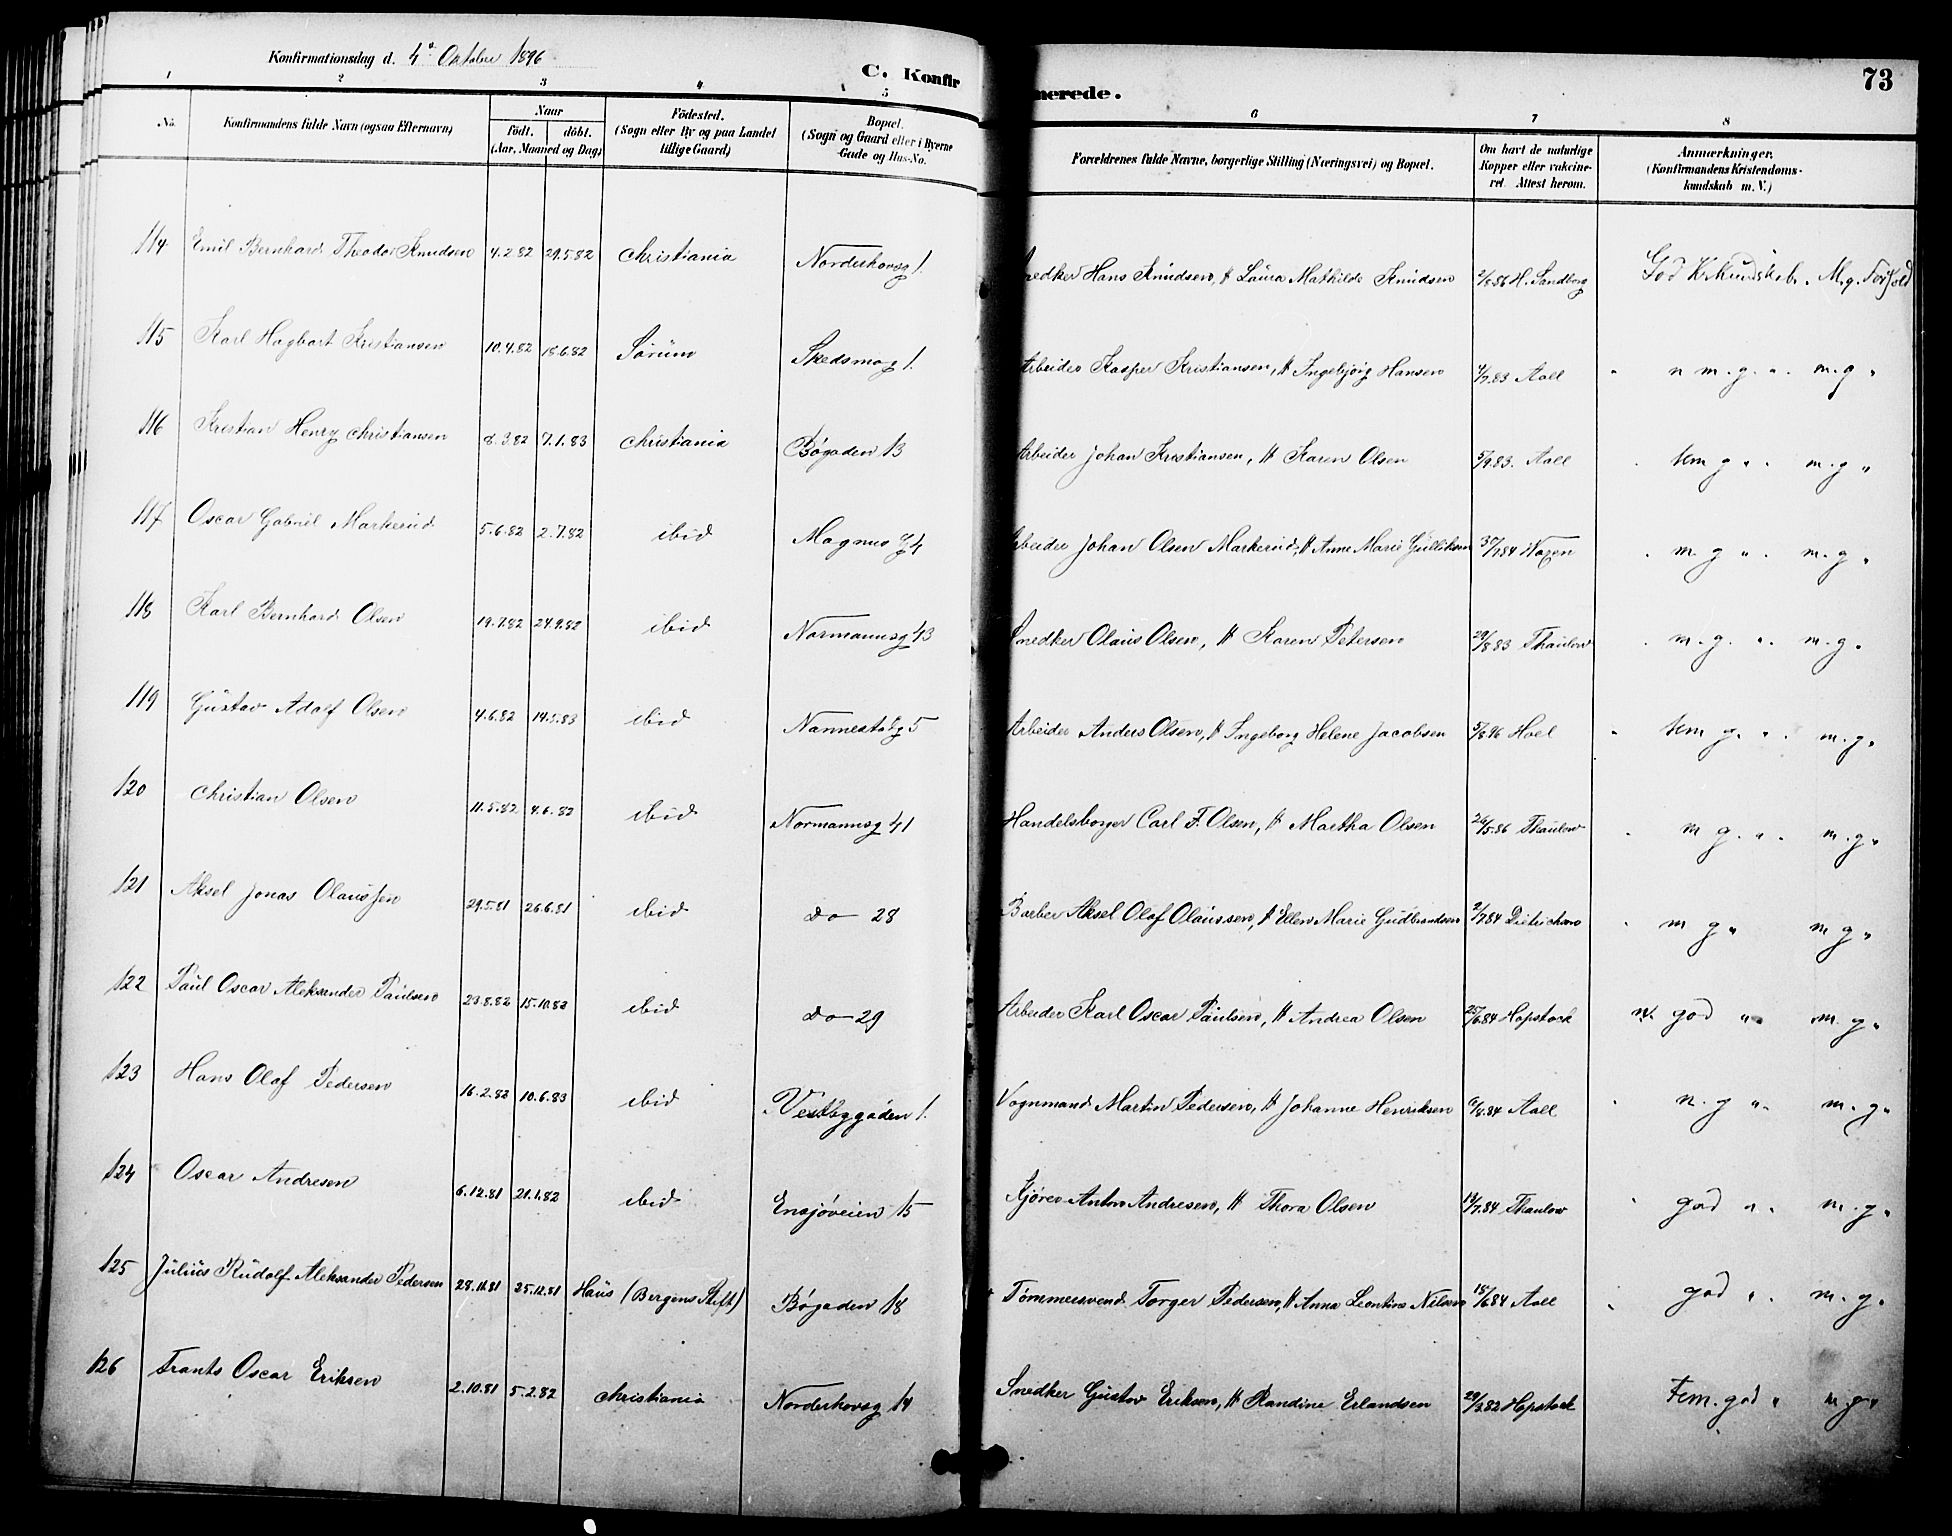 Konfirmationsdag d. 4de Oktober 1896
C. Konfirmerede.
73
1 2 3 4 5 6 7 8
No. Konfirmandens fulde Navn (ogsaa Efternavn) Naar født. døbt. (Aar, Maaned og Dag) Fødested. (Sogn eller By og paa Landet tillige Gaard) Bopæl. (Sogn og Gaard eller i Byerne Gade og Hus-No. Forældrenes fulde Navne, borgerlige Stilling (Næringsvei) og Bopæl. Om havt de naturlige Kopper eller vakcineret. Attest herom. Anmærkninger. (Konfirmandens Kristendomskundskab m. V.)
114 Emil Bernhard Theodor Knudsen 4.2.82 29.5.82 Christiania Norderhovsg 1. Snedker Hans Knudsen, & Laura Mathilde Knudsen 2/8.86 H. Sandborg God Kr.kundskab. M.g. Forhold
115 Karl Hagbart Kristiansen 10.4.82 18.6.82 Sørum Skedsmog 1. Arbeider Kasper Kristiansen, & Ingebjørg Hansen 4/7.83 Aall " n m.g. ". m.g "
116 Kristian Henry Christiansen 8.3.82 7.1.83 Christiania Bøgaden 13 Arbeider Johan Kristiansen, & Karen Olsen 5/9.83. Aall " tem g " . m.g "
117 Oscar Gabriel Markerud 5.6.82 2.7.82 ibid Magnus g 4 Arbeider Johan Olsen Markerud, & Anne Marie Gulliksen 30/7.84 " m.g " . m.g "
118 Karl Bernhard Olsen 19.7.82 24.9.82 ibid Normannsg 43 Snedker Olaus Olsen, & Karen Petersen 29/8.83 Thaulow " m.g. ". m.g.
119 Gustav Adolf Olsen 4.6.82 14.5.83 ibid Nannestadg 5 Arbeider Anders Olsen, & Ingeborg Helene Jacobsen 5/8.96 Hoel " tem g. " . m.g "
120 Christian Olsen 11.5.82 4.6.82 ibid Normannsg 41 Handelsborger Carl F. Olsen, & Martha Olsen 26/5.86 Thaulow " m g. ". m.g "
121 Aksel Jonas Olaussen 29.5.81 26.6.81 ibid Do 28 Barber Aksel Olaf Olaussen, & Ellen Marie Gudbrandsen 2/7.84 Dietrichson " m g " m g "
122 Paul Oscar Aleksander Paulsen 23.8.82 15.10.82 ibid Do 29 Arbeider Karl Oscar Paulsen, & Andrea Olsen 25/6.84 Hopstock n. god " m.g "
123 Hans Olaf Pedersen 16.2.82 10.6.83 ibid Vestbygaden 1. Vognmand Martin Pedersen, & Johanne Henriksen 6/8.84 Aall " n.g ". m.g "
124 Oscar Andresen 6.12.81 21.1.82 ibid Ensjøveien 15 Kjører Anton Andresen, & Thora Olsen 14/7.84 Thaulow " god ". m.g "
125 Julius Rudolf Aleksander Pedersen 28.11.81 25.12.81 Haus (Bergens Stift) Bøgaden 18 Tømmersvend Torger Pedersen, & Anna Leontine Nilsen 18/6.84 Aall " god ". m.g "
126 Frants Oscar Eriksen 2.10.81 5.2.82 Christiania Norderhovsg 14 Snedker Gustav Eriksen, & Randine Erlandsen 29/3.82 Hopstock Tem.god " m.g "